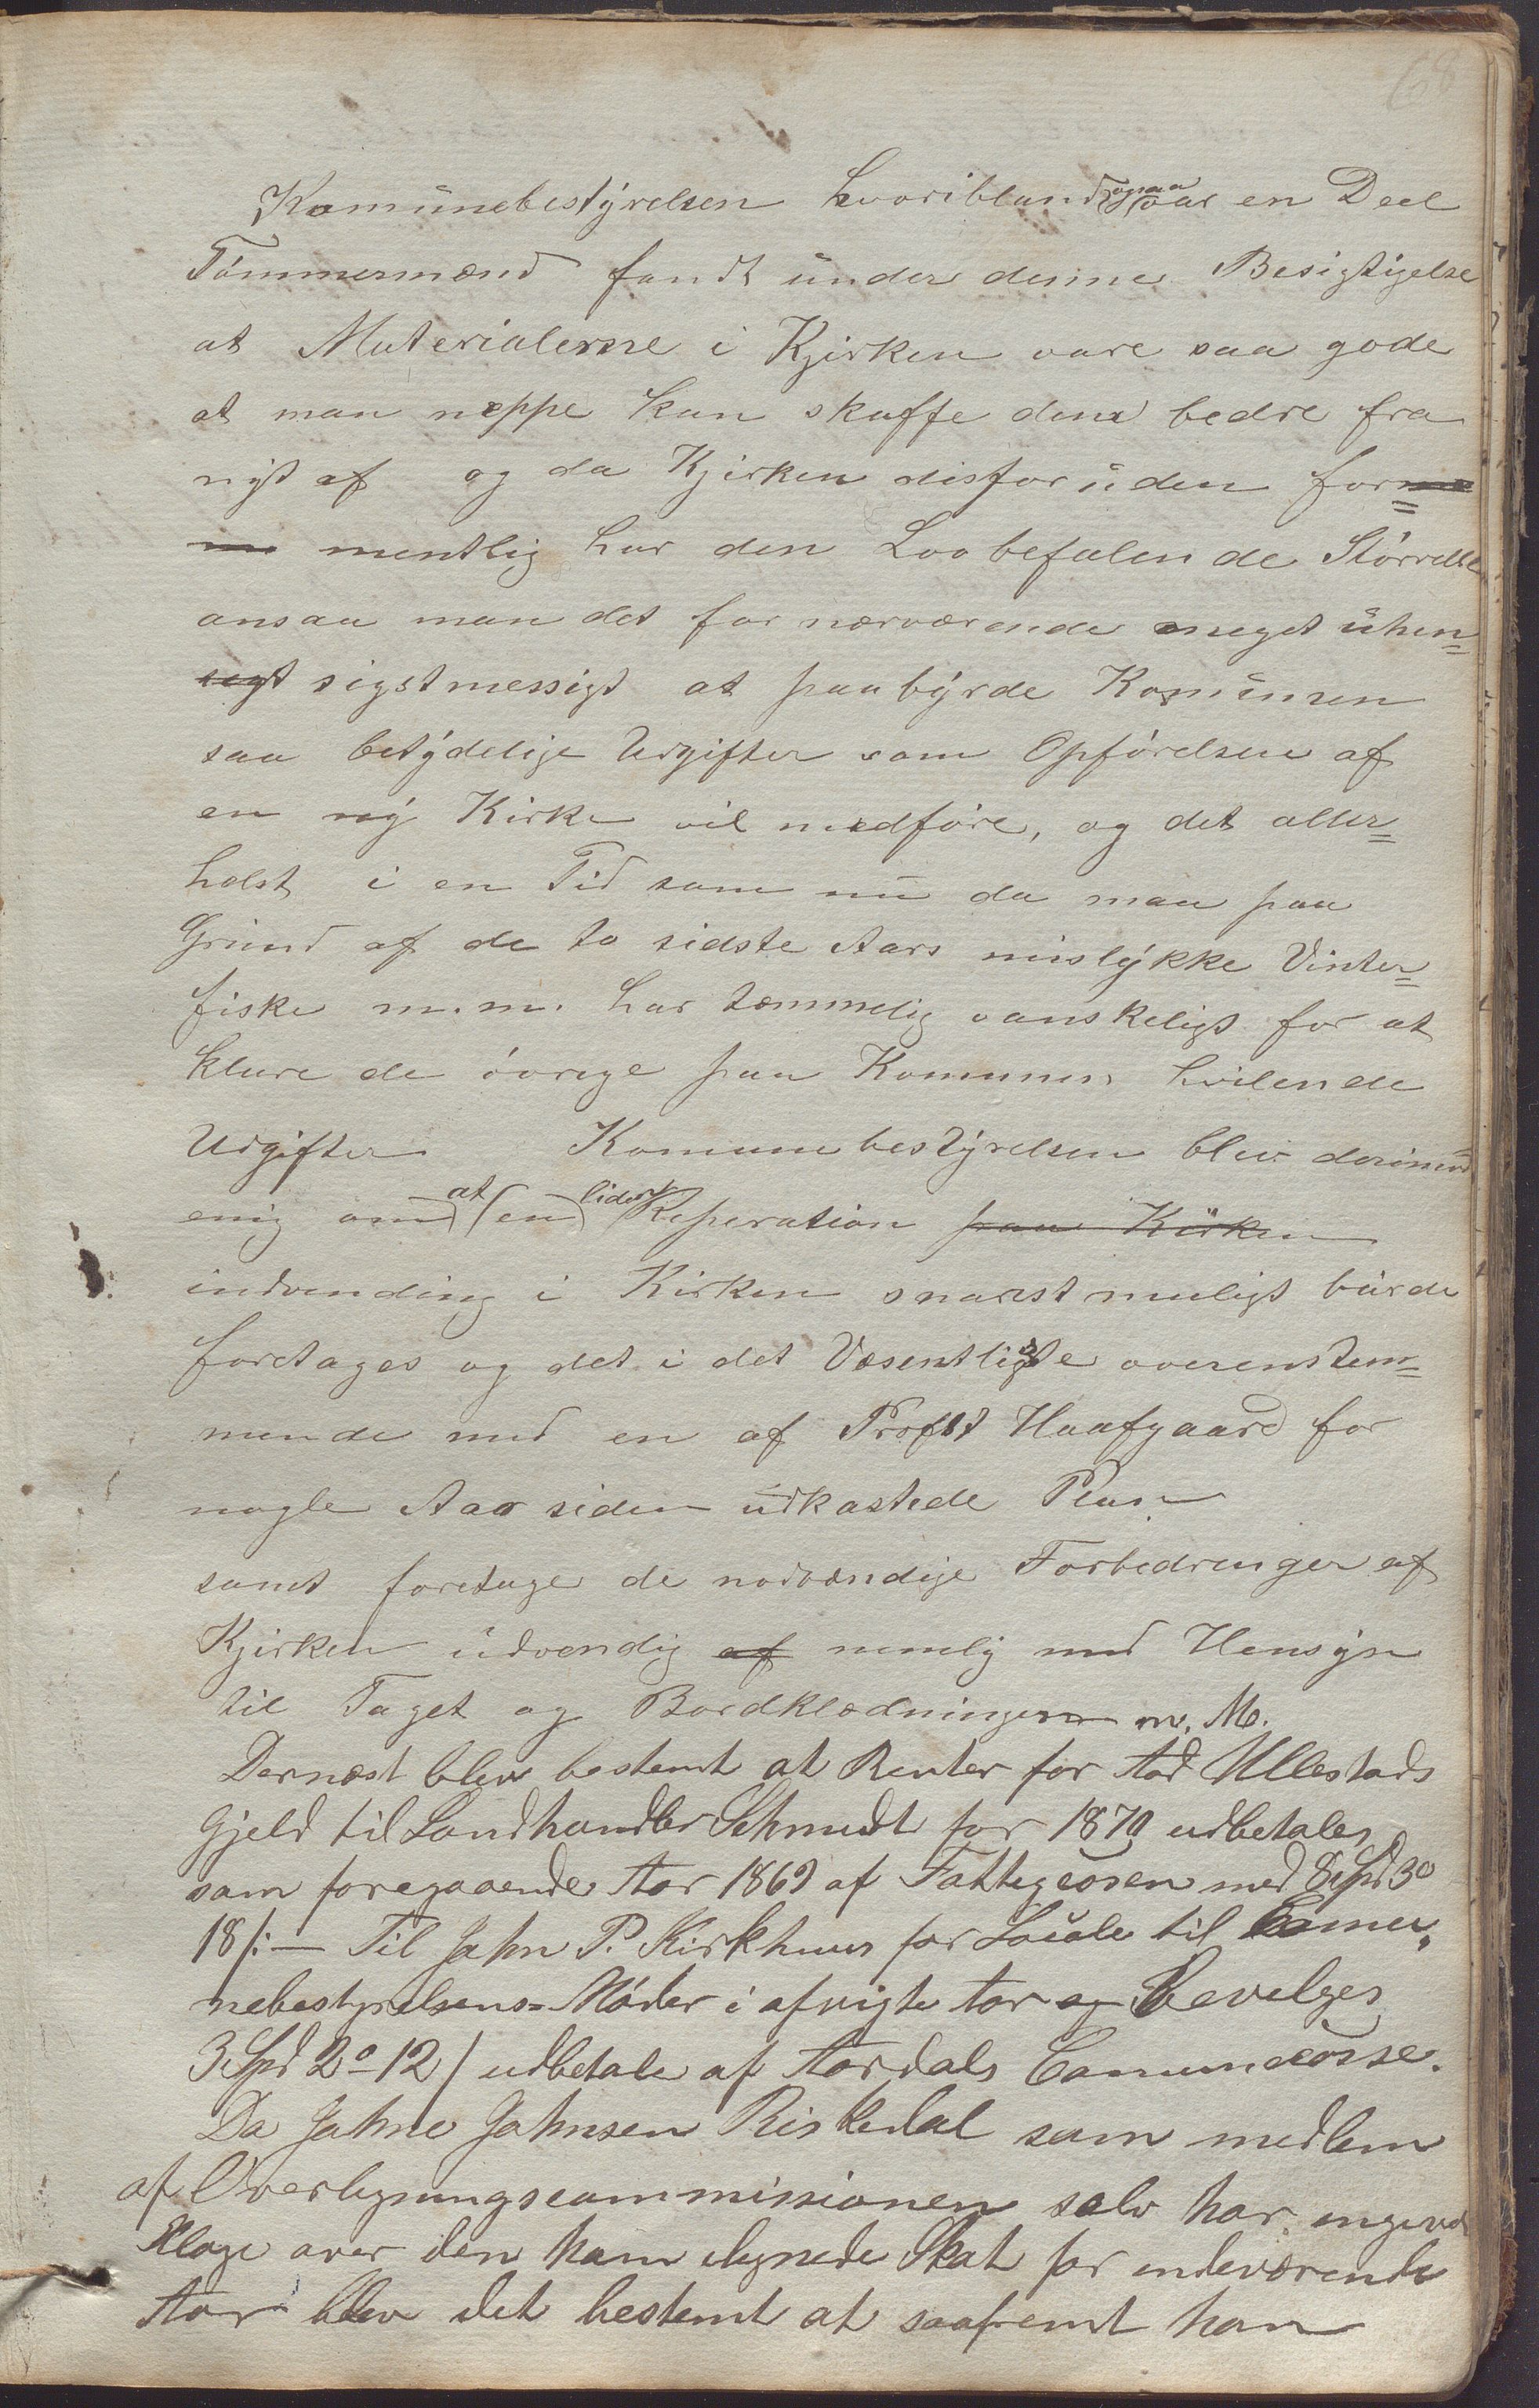 68
Komünebestýrelsen hvoriblandt ogsaa var en Deel
Tömmermænd fandt ünder denne Besigtigelse
at Materialerne i Kjirken vare saa gode
at man neppe kan skaffe dem bedre fra
nyt af og da Kjirken disforüden for=
mentlig har den Lovbefalende Störrelse
ansaa man det for nærværende meget ühen=
sigstmessigt at paabýrde Komünen
saa betýdelige Udgifter som Opförelsen af
en ný Kirke vil medföre, og det aller=
helst i en Tid som nü da man paa
Gründ af de to sidste Aars mislýkke Vinter=
fiske m.m. har temmelig vanskeligt for at
klare de övrige paa Komunen hvilende
Udgifter Komunebestýrelsen blev derimod
enig om at en liden Reperation paa Kirken
indvending i Kirken snarest muligt bürde
foretages og det i det Væsentligste overenstem=
mende med en af Profst Haafgaard for
nogle Aar siden üdkastede Plan
samt foretage de nødvændige Forbedringer af
Kjirken üdvendig af nemlig med Hensýn
til Taget og Bordklædningen m. M.
Dernæst blev bestemt at Renter for Aad Ullestads
Gjeld til Landhandler Schmidt for 1870 udbetales
som foregaaende Aar 1869 af Fattigcassen med 8 Spd 3o
18 /:— Til Jahn P. Kirkhuus for Locale til Comu„
nebestyrelsens Möder i afvigte Aar og Bevelges
3 Spd 2o-12 / udbetale af Aardals Comunecasse.
Da Jahne Jahnsen Riskedal som medlem
af Overligningscommissionen selv har ingived
Klage over den ham ilignede Skat for indeværende
Aar blev det bestemt at saafremt han